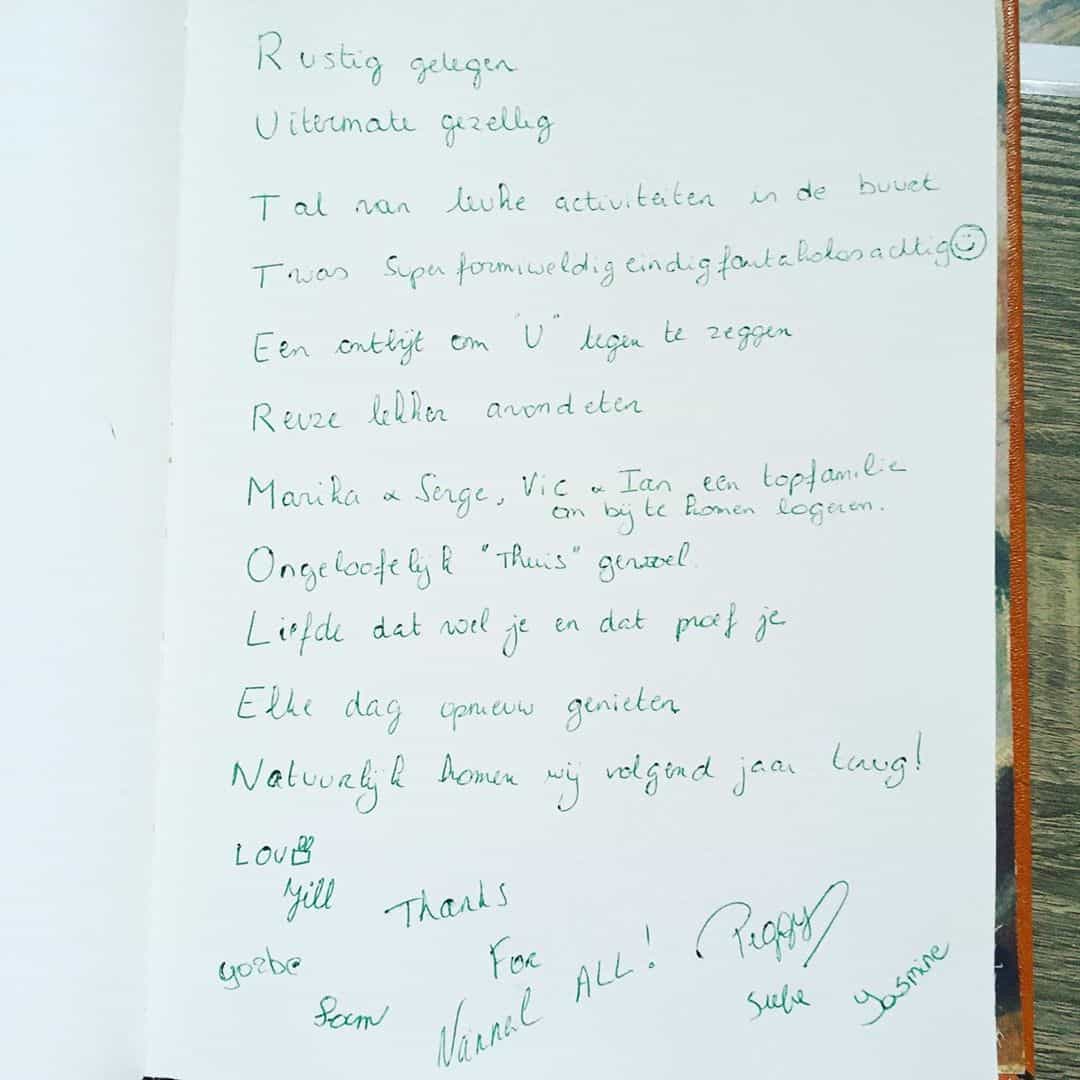 Rustig gelegen
Uitermate gezellig
Tal van leuke activiteiten in de buurt
Twas Superformiweldigeindigfantakolosachtig
Een ontbijt om "U" tegen te zeggen
Reuze lekker avondeten
Marika & Serge, Vic & Ian een topfamilie
om bij te komen logeren.
Ongelooflijk "Thuis" gevoel.
Liefde dat voel je en dat proef je
Elke dag opnieuw genieten
Natuurlijk komen wij volgend jaar terug!
LOV
Yill
Thanks
For
ALL!
Peggy
Yasmine